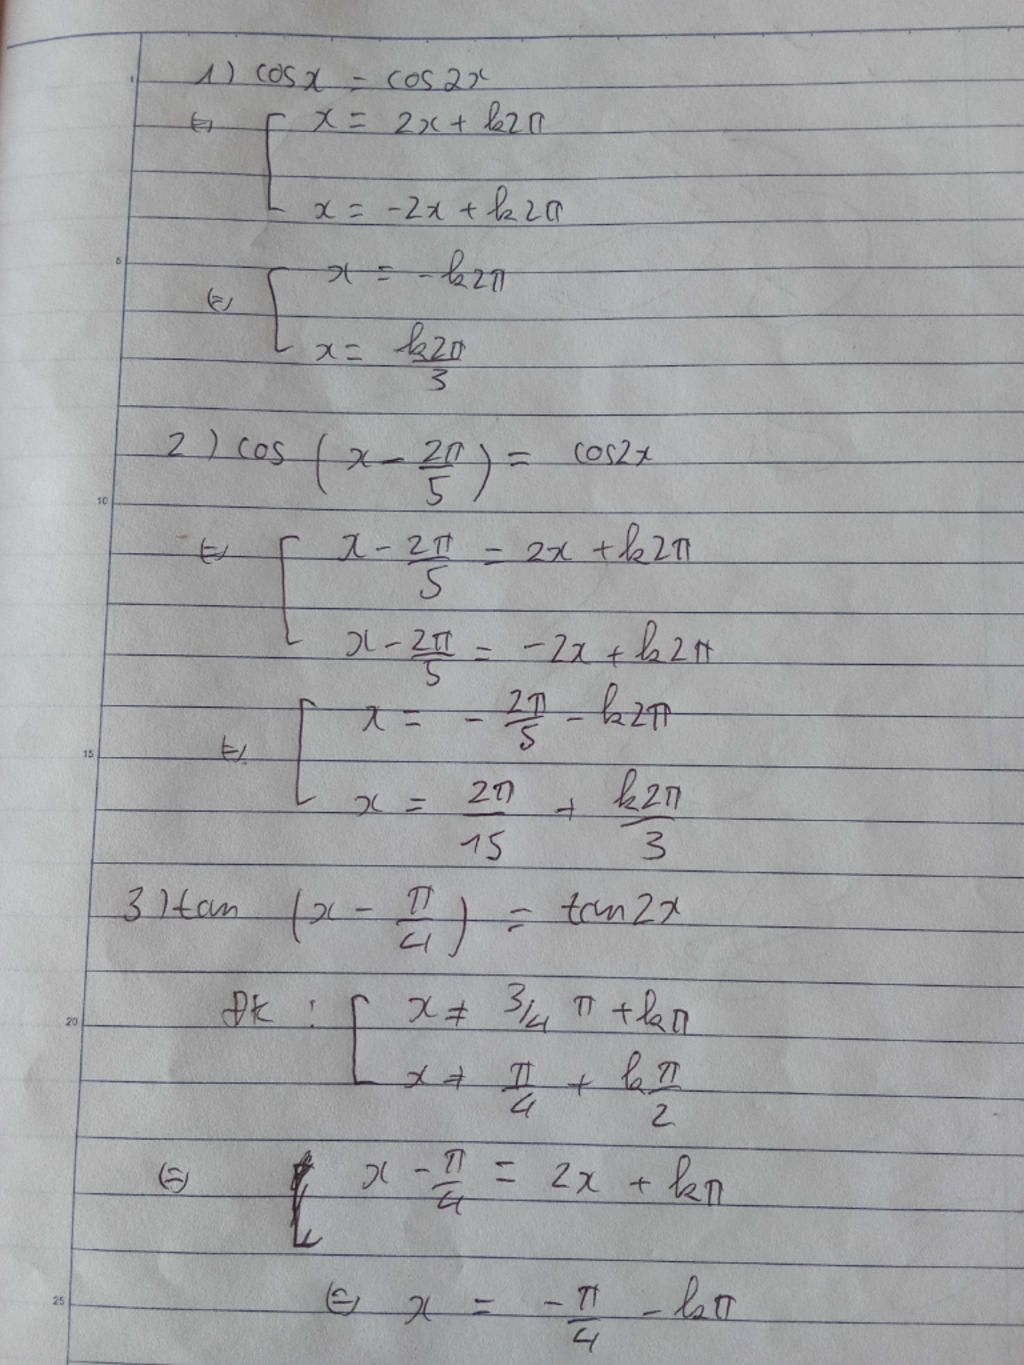 1) cosx = cos2x
⇔ [ x = 2x + k2π
x = -2x + k2π
5
⇔ [ x = -k2π
x = k2π/3
2) cos (x - 2π/5) = cos2x
10
⇔ [ x - 2π/5 = 2x + k2π
x - 2π/5 = -2x + k2π
⇔ [ x = - 2π/5 - k2π
15
x = 2π/15 + k2π/3
3) tan (x - π/4) = tan2x
ĐK : [ x ≠ 3/4 π + kπ
20
x ≠ π/4 + k π/2
⇔ x - π/4 = 2x + kπ
25
⇔ x = -π/4 - kπ